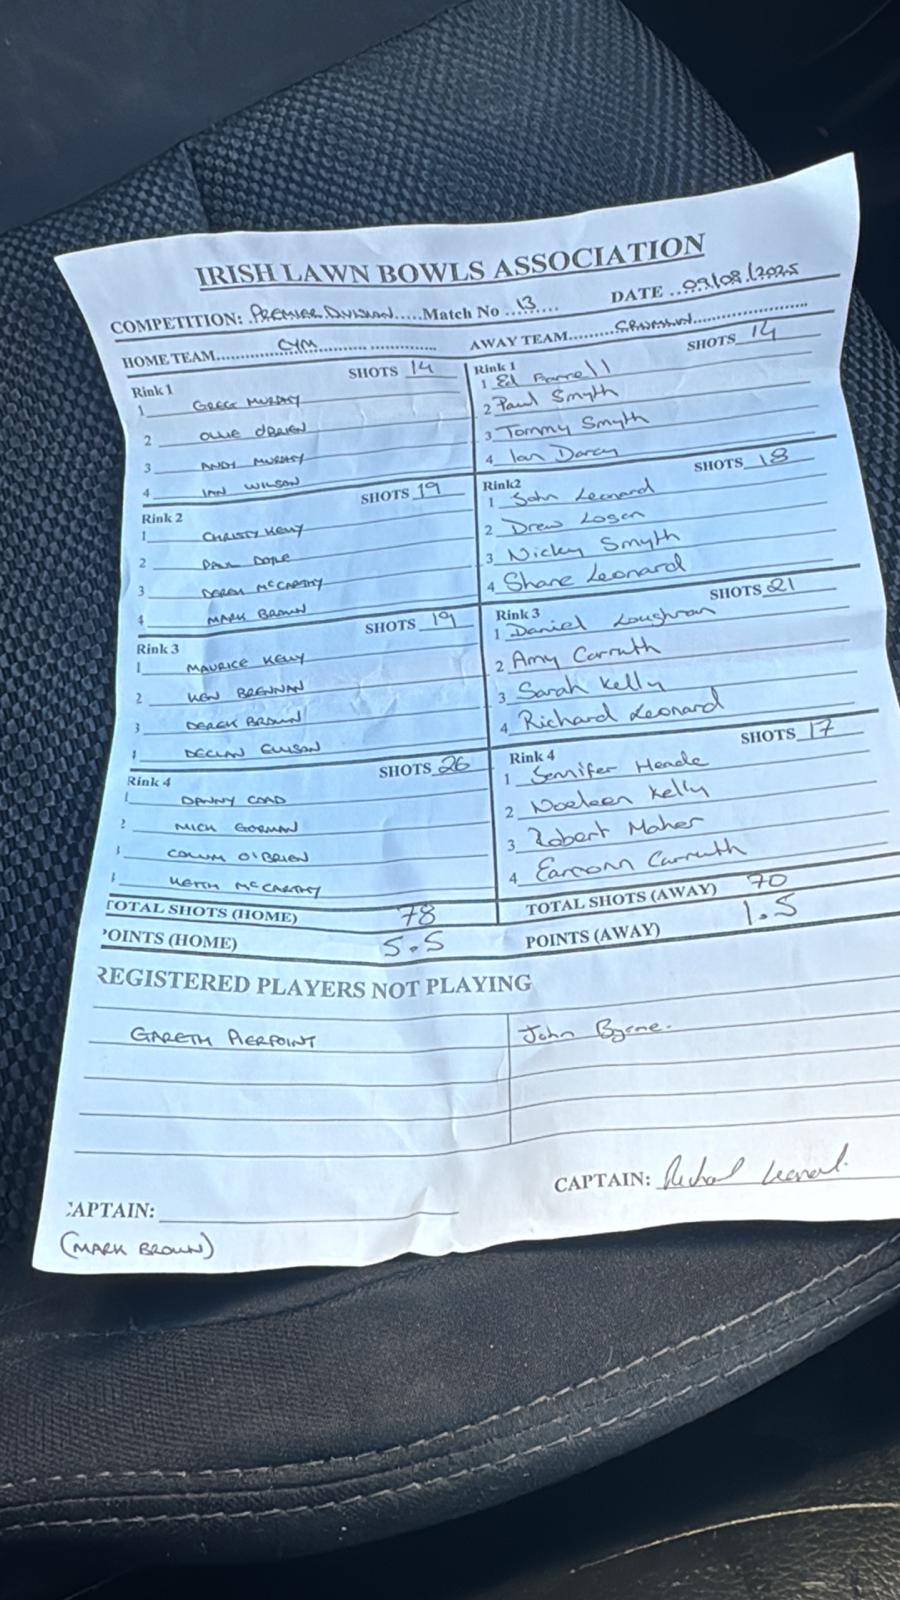 IRISH LAWN BOWLS ASSOCIATION
COMPETITION: PREMIER DIVISION Match No 13 DATE 09/08/2025
HOME TEAM CYM AWAY TEAM
Rink 1 SHOTS 14
1 GREGG MURPHY
2 OLLIE O'BRIEN
3 ANDY MURPHY
4 IAN WILSON
Rink 2 SHOTS 19
1 CHRISTY KELLY
2 PAUL DOYLE
3 DEREK McCARTHY
4 MARK BROWN
Rink 3 SHOTS 19
1 MAURICE KELLY
2 KEN BRENNAN
3 DEREK BROWN
4 DECLAN ELLISON
Rink 4 SHOTS 26
1 DANNY COAD
2 MICK GORMAN
3 COLUM O'BRIEN
4 KEITH McCARTHY
TOTAL SHOTS (HOME) 78
POINTS (HOME) 5.5
Rink 1 SHOTS 14
1 Ed Farrell
2 Paul Smyth
3 Tommy Smyth
4 Ian Darcy
Rink2 SHOTS 18
1 John Leonard
2 Drew Logan
3 Nicky Smyth
4 Shane Leonard
Rink 3 SHOTS 21
1 Daniel Loughran
2 Amy Carruth
3 Sarah Kelly
4 Richard Leonard
Rink 4 SHOTS 17
1 Jennifer Heade
2 Noeleen Kelly
3 Robert Maher
4 Eamonn Carruth
TOTAL SHOTS (AWAY) 70
POINTS (AWAY) 1.5
REGISTERED PLAYERS NOT PLAYING
GARETH PIERPOINT
John Byrne.
CAPTAIN:
(MARK BROWN)
CAPTAIN: Richard Leonard.